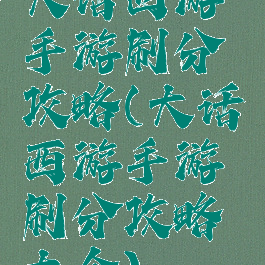 大话西游
手游刷分
攻略(大话
西游手游
刷分攻略
大全)